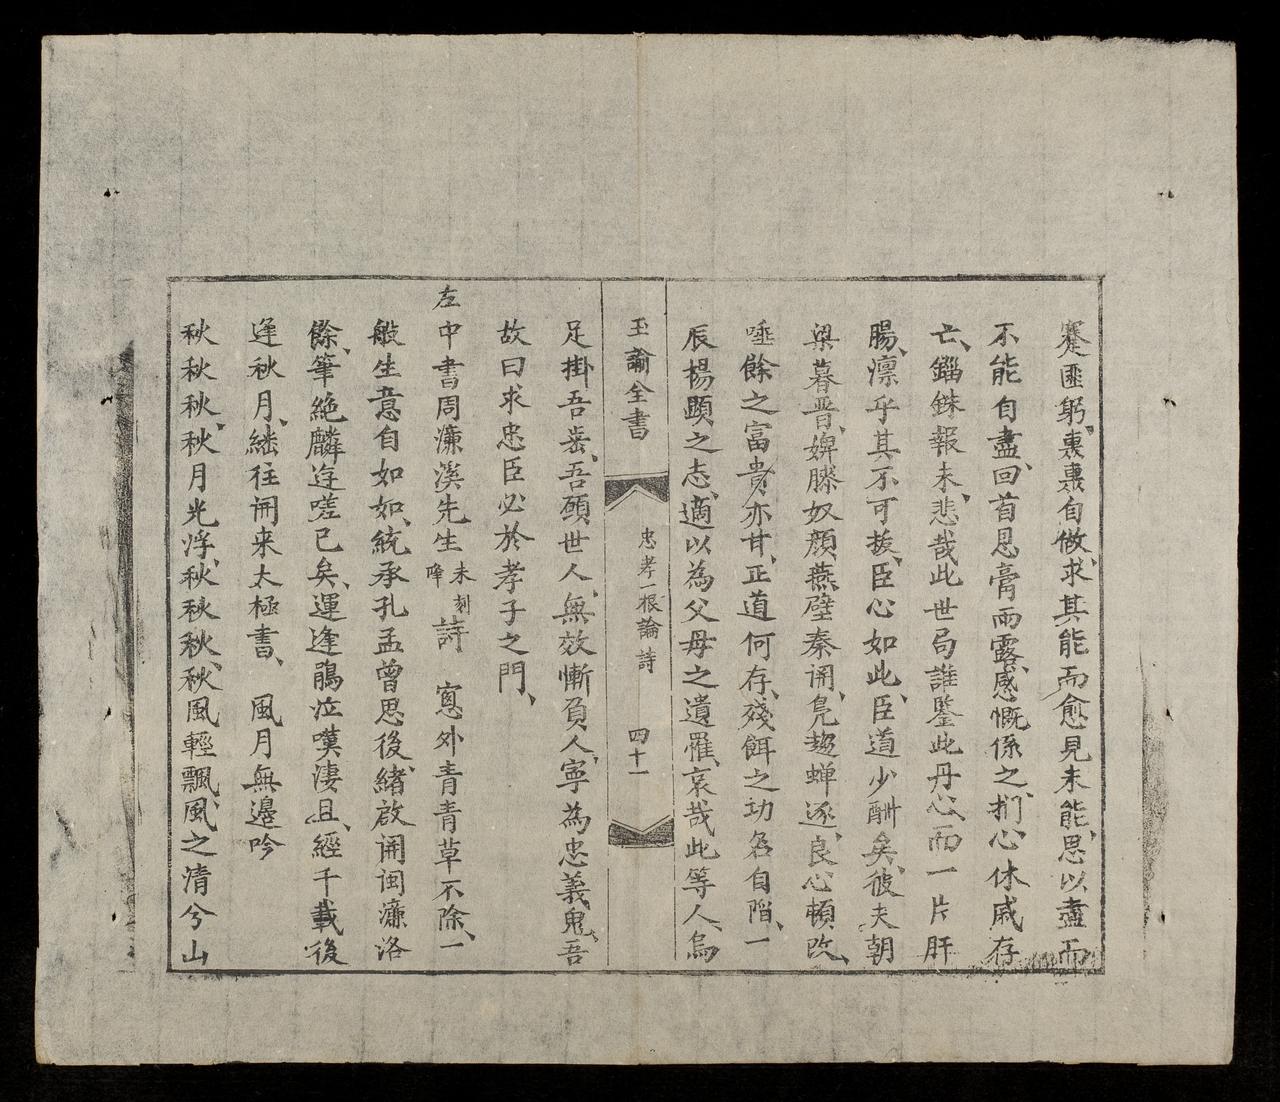 蹇匪躬、裏裏自做、求其能而愈見未能、思以盡而
不能自盡、回首恩膏雨露、感慨係之、捫心休戚存
亡、錙銖報未、悲哉此世局誰鑒此丹心、而一片肝
腸、凛乎其不可拔、臣心如此、臣道少酬矣、彼夫朝
梁暮晋、婢膝奴顏、燕壁秦開、鳧趨蝉逐、良心頓改、
唾餘之富貴亦甘、正道何存、殘餌之功名自䧟、一
辰楊顕之志、適以為父母之遺罹、哀哉此等人、烏
玉諭全書
忠孝一根論 詩
四十一
足掛吾齒、吾願世人、無效慚負人、寧為忠義鬼、吾
故曰求忠臣必於孝子之門、
左中書周濂溪先生 未刻降 詩 窓外青青草不除、一
般生意自如如、統承孔孟曾思後、緒啟開閩濂洛
餘、筆絶麟迍嗟已矣、運逢鵑泣嘆淒且、經千載後
逢秋月、継往開来太極書、 風月無邊吟
秋秋秋、秋月光浮、秋秋秋、秋風輕飄、風之清兮山